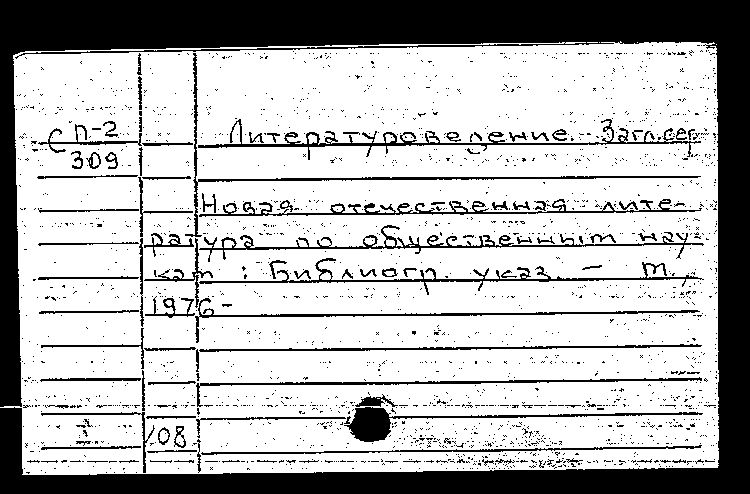 С П-2
309
Литературоведение. Загл.сер.
Новая отечественная лите-
ратура по общественным нау-
кам : Библиогр. указ. – М.,
1976-
108